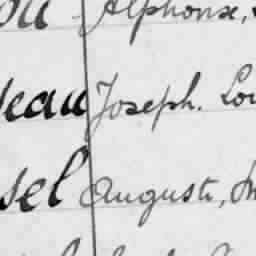 Alphonse,
eau Joseph. Lou
sel Auguste, M